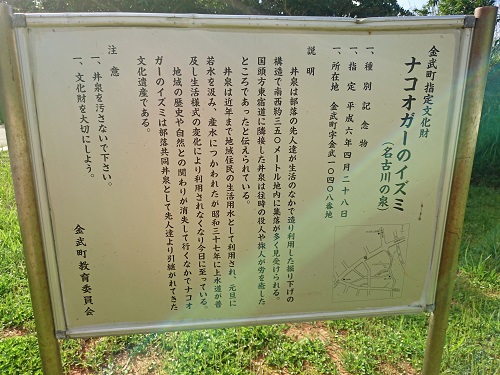 金武町指定文化財
ナコオガーのイズミ
(名古川の泉)
一、種別 記念物
一、指定 平成六年四月二十八日
一、所在地 金武町字金武一〇四〇八番地
説明
井泉は部落の先人達が生活のなかで造り利用した掘り下げの
構造で南西約三五〇メートル地内に集落が多く見受けられる。
国頭方東宿道に隣接した井泉は往時の役人や旅人が労を癒した
ところであったと伝えられている。
井泉は近年まで地域住民の生活用水として利用され、元旦に
若水を汲み、産水につかわれたが昭和三十七年に上水道が普
及し生活様式の変化により利用されなくなり今日に至っている。
地域の歴史や自然との関わりが消失して行くなかでナコオ
ガーのイズミは部落共同井泉として先人達より引継がれてきた
文化遺産である。
注意
一、井泉を汚さないで下さい。
一、文化財を大切にしよう。
金武町教育委員会